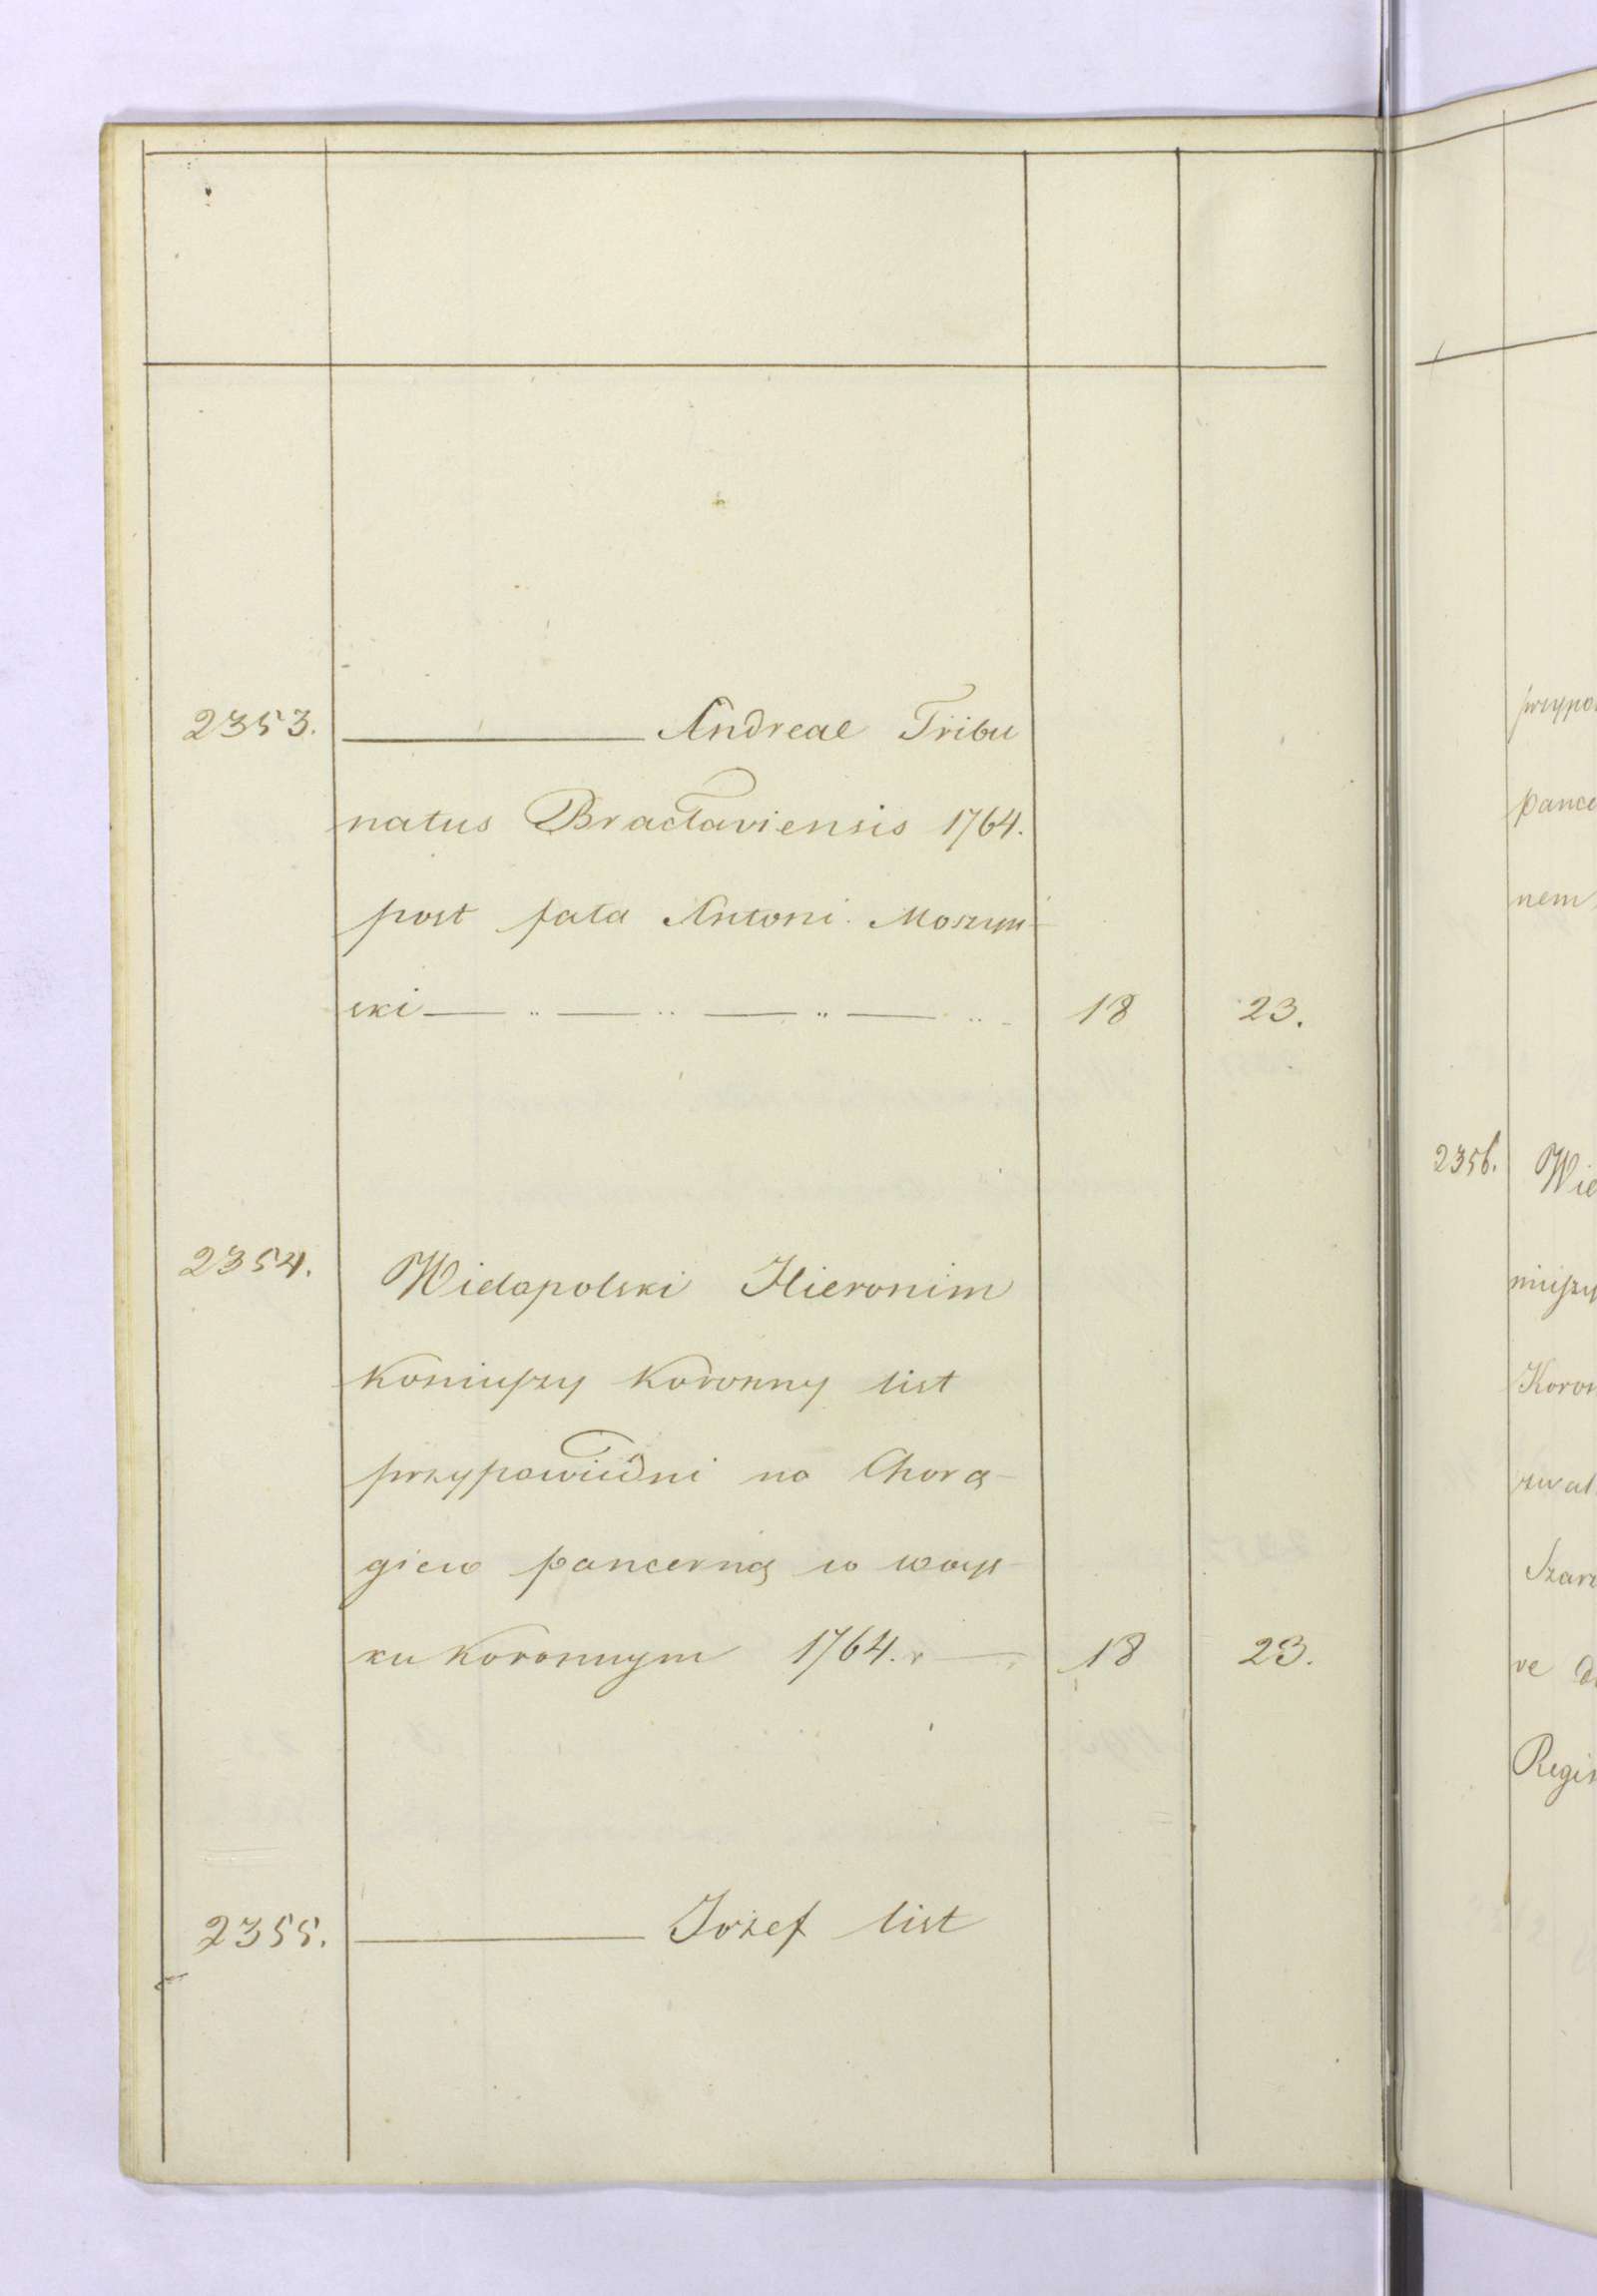 2353. ——— Andreae Tribu
natus Bractaviensis 1764.
post fata Antoni Moszyń-
ski — „ — „ — „ — „ 18 23.
2354. Wielopolski Hieronim
Koniuszy Koronny list
przypowiedni na Chorą-
giew pancerną w woys-
ku Koronnym 1764. r — 18 23.
2355. ——— Józef list
przypo
pance
nem
2356. Wie
niuszy
Koron
Szarż
Regi